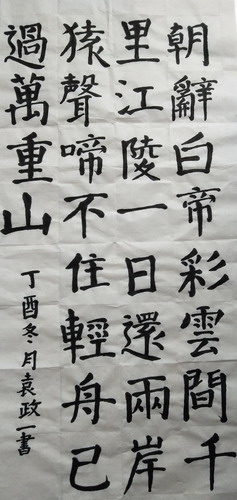 朝辭白帝彩雲間千
里江陵一日還兩岸
猿聲啼不住輕舟已
過萬重山
丁酉冬月袁政一書